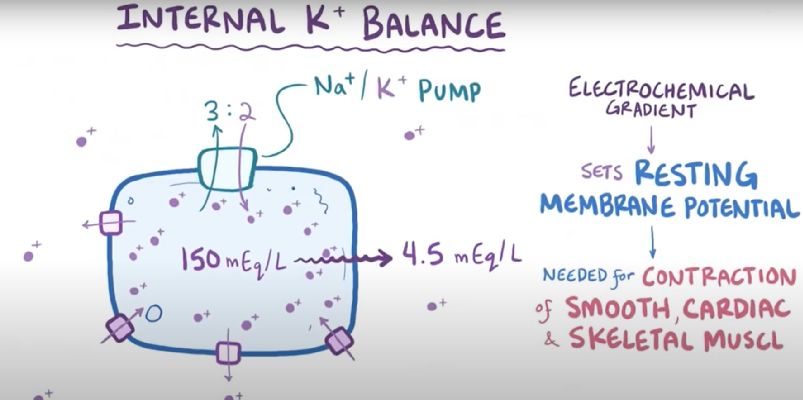 INTERNAL K⁺ BALANCE
Na⁺/K⁺ PUMP
3:2
150 mEq/L
4.5 mEq/L
ELECTROCHEMICAL
GRADIENT
SETS RESTING
MEMBRANE POTENTIAL
NEEDED for CONTRACTION
of SMOOTH, CARDIAC
& SKELETAL MUSCL